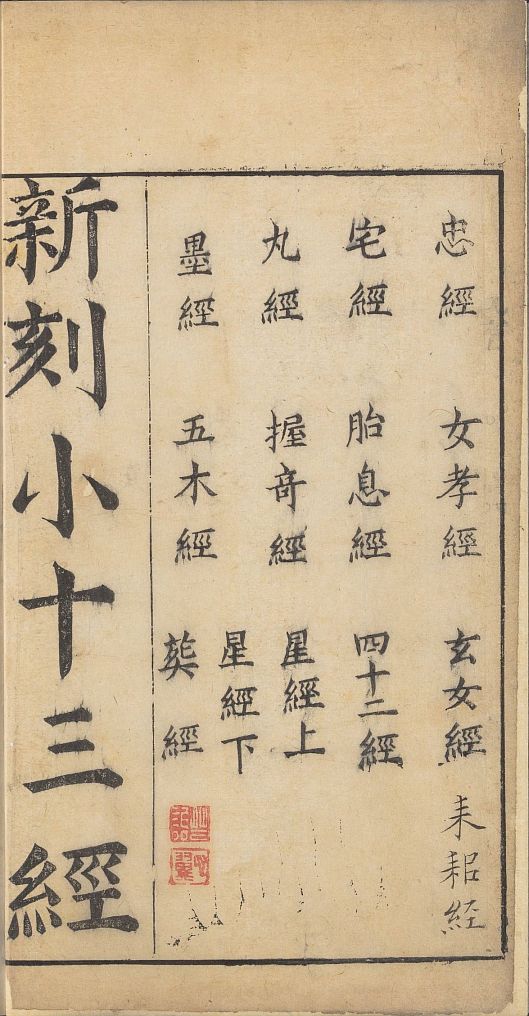 忠經 女孝經 玄女經 耒耜経
宅經 胎息經 四十二經
丸經 握竒經 星經上
星經下
墨經 五木經 葬經
新刻小十三經